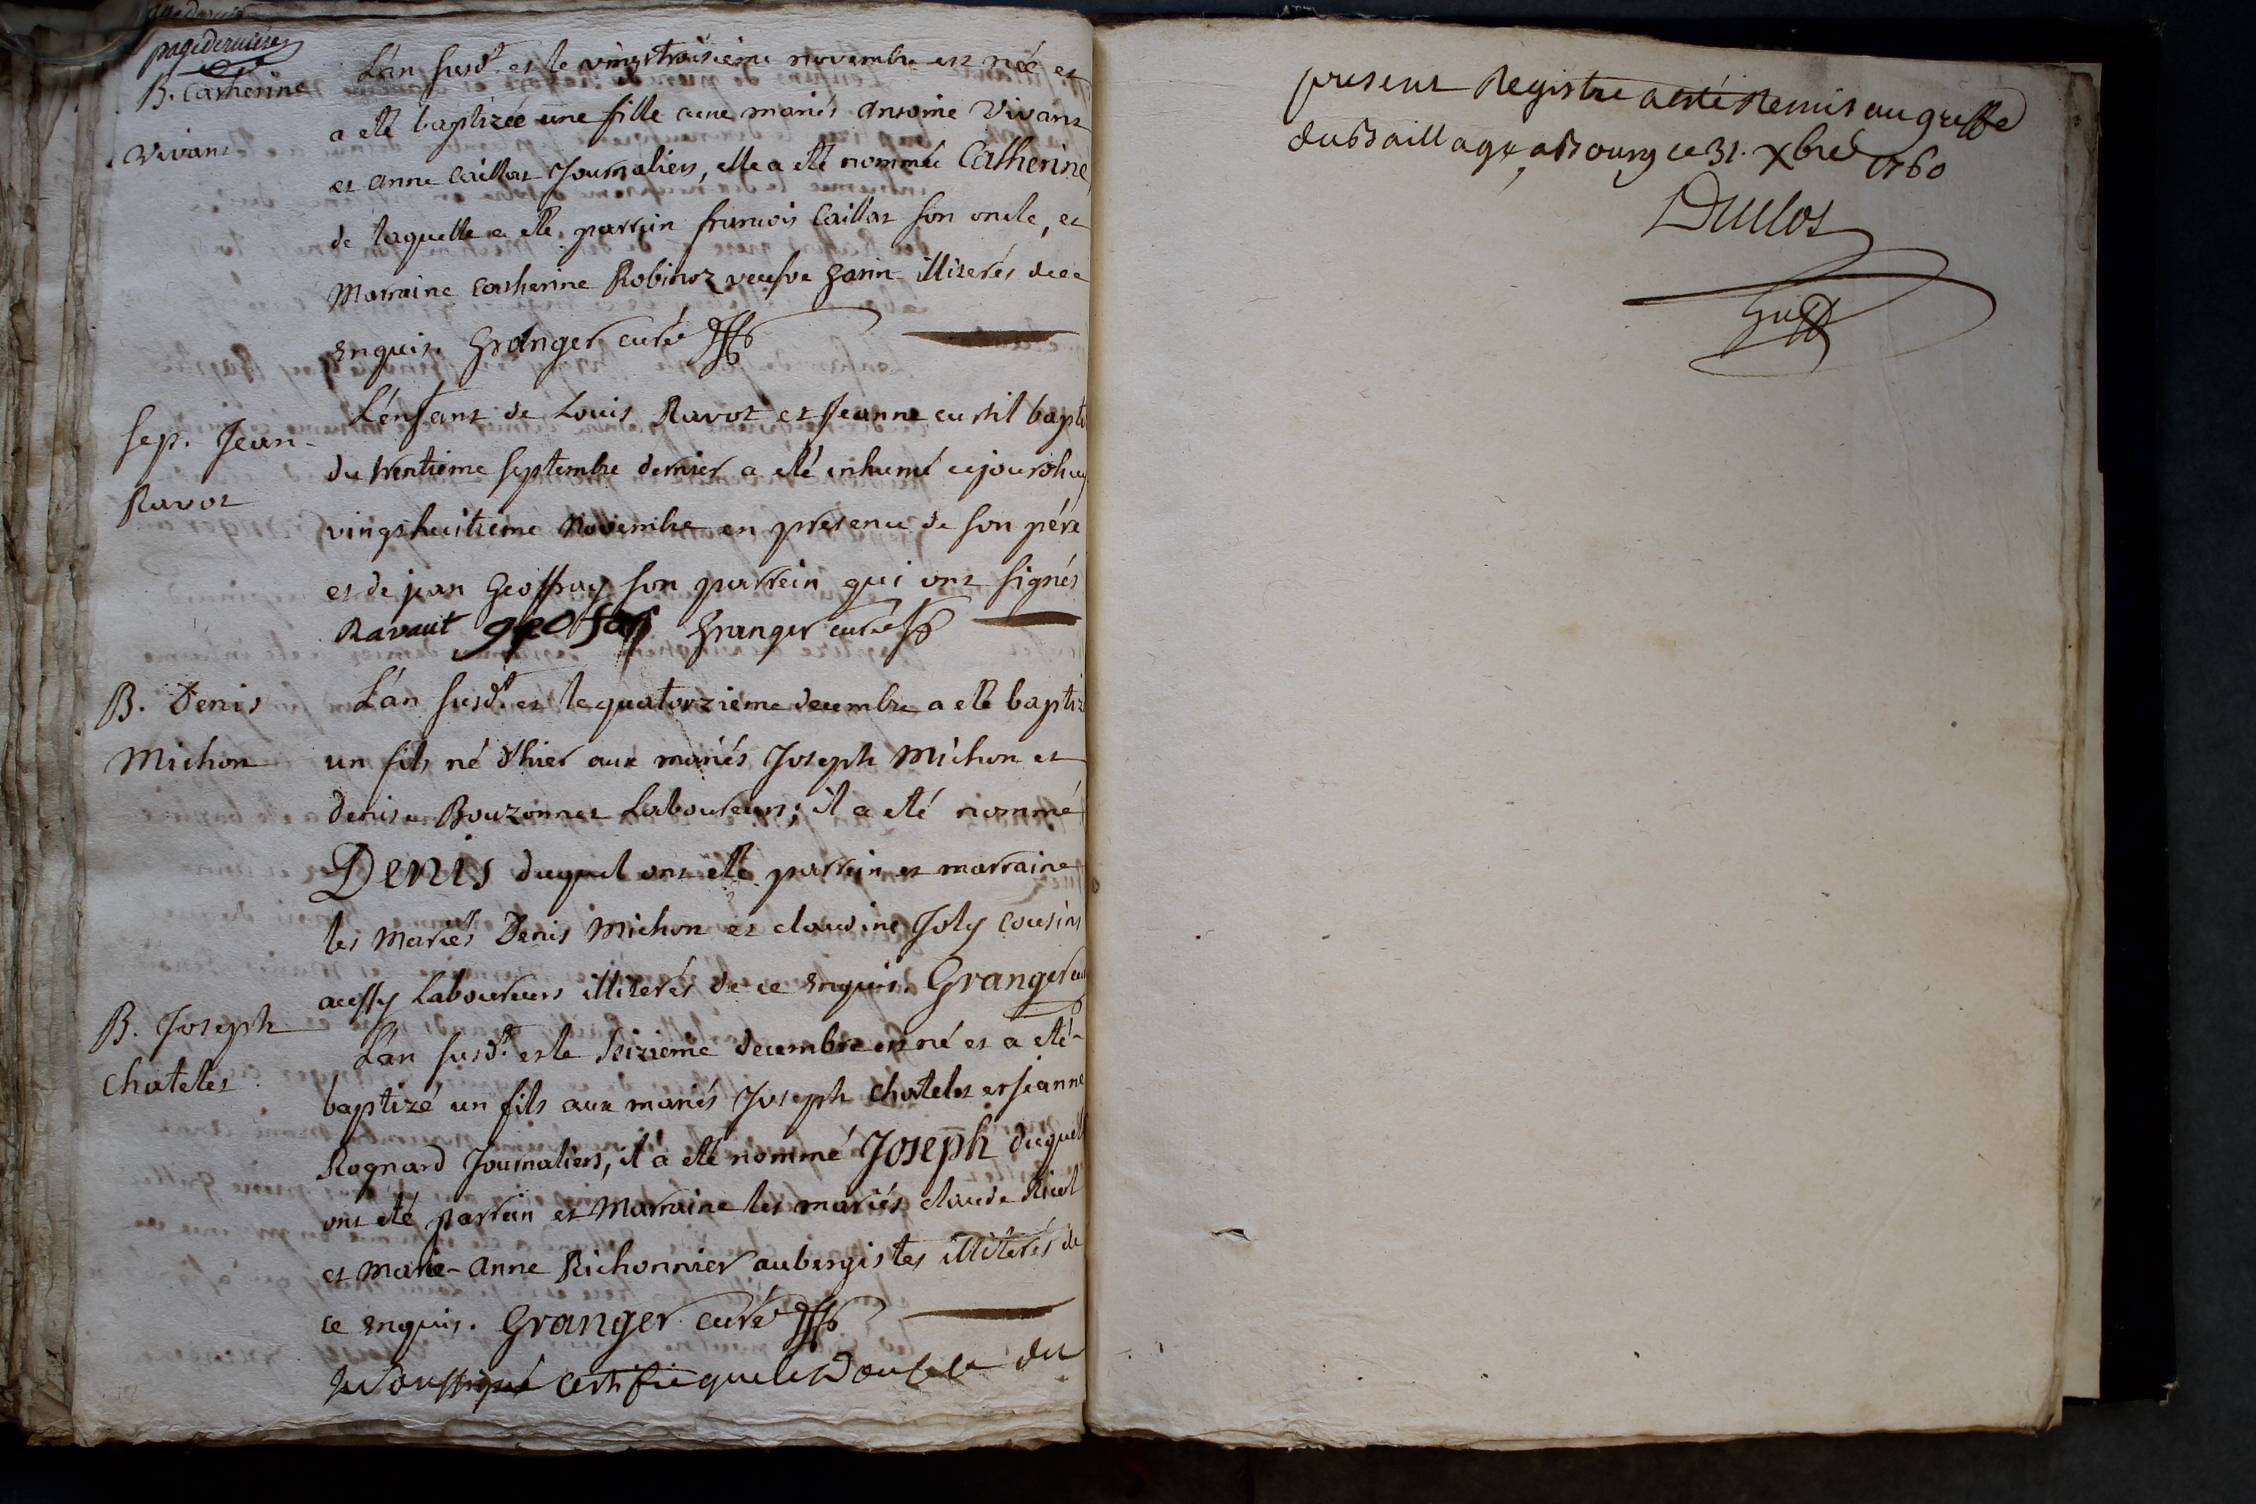 page derniere
B. Catherine
Vivant
L'an susd.t et le vingtroisieme novembre est née et
a eté baptizée une fille aux mariés Antoine Vivant
et Anne Caillat Journaliers, elle a eté nommée Catherine,
de laquelle a eté parrein francois Caillat son oncle, et
Marraine Catherine Robinot veufve Garin illiterés de ce
enquis. Granger curé
Sep. Jean
Ravot
L'enfant de Louis Ravot et Jeanne curtil baptizé
du trentieme septembre dernier a eté inhumé cejourdhuy
vingthuitieme Novembre en présence de son pére
et de jean Geoffray son parrein qui ont signés
Ravaut geofray Granger curé
B. Denis
Michon
L'an susd.t et le quatorzieme decembre a eté baptizé
un fils né d'hier aux mariés Joseph Michon et
denise Bouzonnet Laboureurs; il a eté nommé
Denis duquel ont eté parrein et marraine
les mariés Denis Michon et claudine Joly cousins
aussy Laboureurs illiterés de ce enquis. Granger curé
B. Joseph
Chatelet
L'an susd.t et le seizieme decembre est né et a eté
baptizé un fils aux mariés Joseph Chatelet et Jeanne
Rognard Journaliers, il a eté nommé Joseph duquel
ont eté parrein et Marraine les mariés claude
et Marie-Anne Richonnier aubergistes illiterés de
ce enquis. Granger curé
Je soussigné certifie que le Double du
present Registre a esté Remis au greffe
du Baillage, a Bourg ce 31. Xbre 1760
Duclos